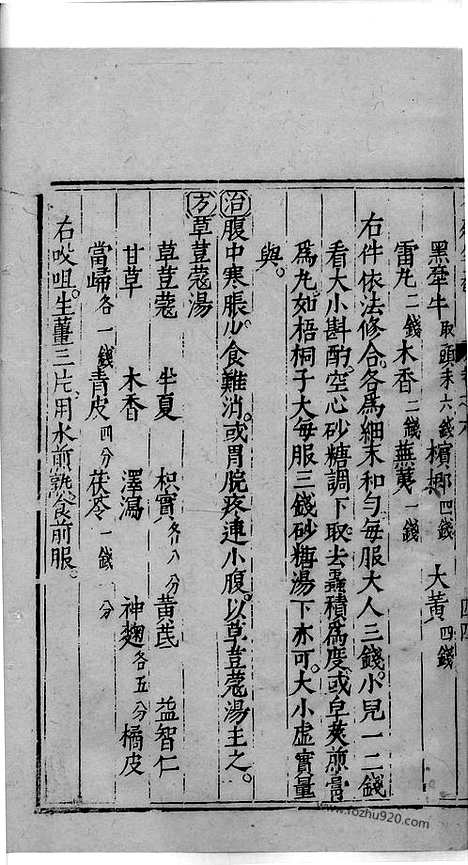 黑牽牛取頭末六錢 檳榔四錢 大黃四錢
雷丸二錢 木香二錢 蕪荑一錢
右件依法修合各為細末和勻每服大人三錢小兒一二錢
看大小斟酌空心砂糖調下取去蟲積為度或皂莢煎膏
為丸如梧桐子大每服三錢砂糖湯下亦可大小虛實量
與
治腹中寒脹少食難消或胃脘疼連小腹以草荳蔻湯主之
方草荳蔻湯
草荳蔻 半夏 枳實各八分 黃芪 益智仁
甘草 木香 澤瀉 神麴各五分 橘皮
當歸各一錢 青皮四分 茯苓一錢 分
右㕮咀生薑三片用水煎熟食前服
www.fozhu920.com